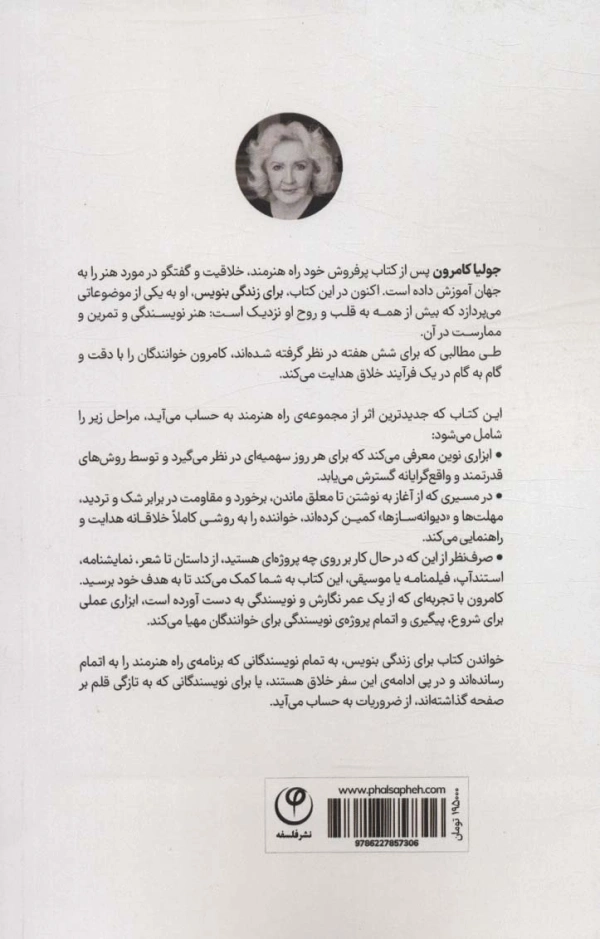 جولیا کامرون پس از کتاب پرفروش خود راه هنرمند، خلاقیت و گفتگو در مورد هنر را به
جهان آموزش داده است. اکنون در این کتاب، برای زندگی بنویس، او به یکی از موضوعاتی
می‌پردازد که بیش از همه به قلب و روح او نزدیک است: هنر نویسندگی و تمرین و
ممارست در آن.
طی مطالبی که برای شش هفته در نظر گرفته شده‌اند، کامرون خوانندگان را با دقت و
گام به گام در یک فرآیند خلاق هدایت می‌کند.
این کتاب که جدیدترین اثر از مجموعه‌ی راه هنرمند به حساب می‌آید، مراحل زیر را
شامل می‌شود:
• ابزاری نوین معرفی می‌کند که برای هر روز سهمیه‌ای در نظر می‌گیرد و توسط روش‌های
قدرتمند و واقع‌گرایانه گسترش می‌یابد.
• در مسیری که از آغاز به نوشتن تا معلق ماندن، برخورد و مقاومت در برابر شک و تردید،
مهلت‌ها و «دیوانه‌سازها» کمین کرده‌اند، خواننده را به روشی کاملاً خلاقانه هدایت و
راهنمایی می‌کند.
• صرف‌نظر از این که در حال کار بر روی چه پروژه‌ای هستید، از داستان تا شعر، نمایشنامه،
استندآپ، فیلمنامه یا موسیقی، این کتاب به شما کمک می‌کند تا به هدف خود برسید.
کامرون با تجربه‌ای که از یک عمر نگارش و نویسندگی به دست آورده است، ابزاری عملی
برای شروع، پیگیری و اتمام پروژه‌ی نویسندگی برای خوانندگان مهیا می‌کند.
خواندن کتاب برای زندگی بنویس، به تمام نویسندگانی که برنامه‌ی راه هنرمند را به اتمام
رسانده‌اند و در پی ادامه‌ی این سفر خلاق هستند، یا برای نویسندگانی که به تازگی قلم بر
صفحه گذاشته‌اند، از ضروریات به حساب می‌آید.
www.phalsapheh.com
نشر فلسفه
9786227857306
۱۹۵۰۰۰ تومان